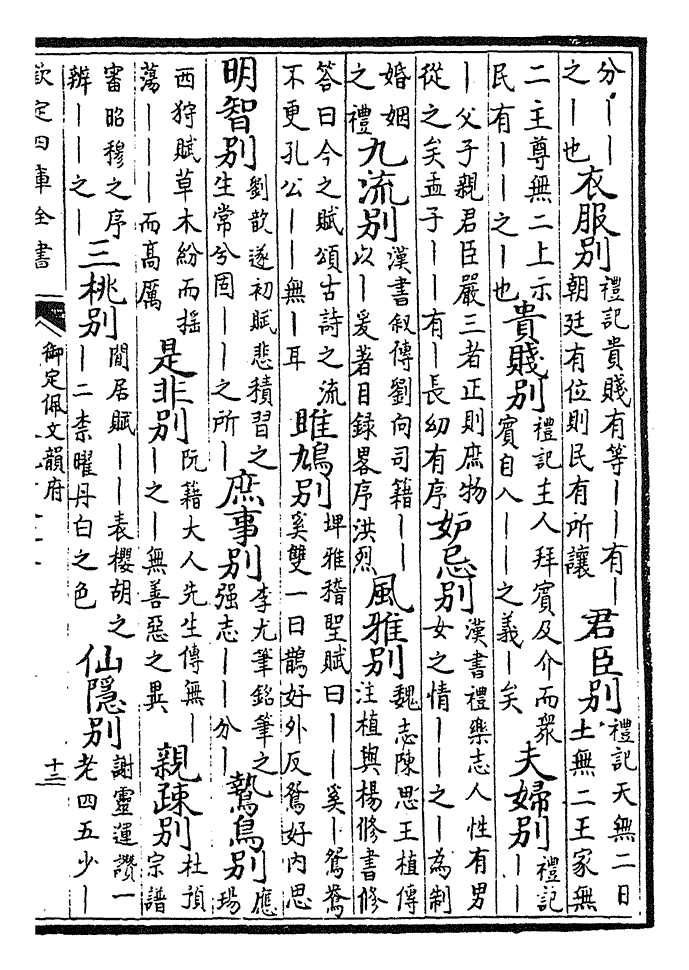 分丨丨之丨也衣服別禮記貴賤有等丨丨有丨朝廷有位則民有所讓君臣別禮記天無二日土無二王家無
二主尊無二上示民有丨丨之丨也貴賤別禮記主人拜賓及介而衆賓自入丨丨之義丨矣夫婦別禮記丨丨
丨父子親君臣嚴三者正則庶物從之矣孟子丨丨有丨長幼有序妒忌別漢書禮樂志人性有男女之情丨丨之丨為制
婚姻之禮九流別漢書叙傳劉向司籍丨丨以丨爰著目録畧序洪烈風雅別魏志陳思王植傳注植與楊修書修
答曰今之賦頌古詩之流不更孔公丨丨無丨耳雎鳩別埤雅稽聖賦曰丨丨奚丨鴛鴦奚雙一曰鵲好外反鴛好内思
明智別劉歆遂初賦悲積習之生常兮固丨丨之所丨庶事別李尤筆銘筆之强志丨丨分丨鷙鳥別應瑒
西狩賦草木紛而揺蕩丨丨丨而髙厲是非別阮籍大人先生傳無丨丨之丨無善惡之異親疎別杜預宗譜
審昭穆之序辨丨丨之丨三桃別閒居賦丨丨表櫻胡之丨二柰曜丹白之色仙隱別謝靈運讚一老四五少丨
欽定四庫全書
御定佩文韻府
十二